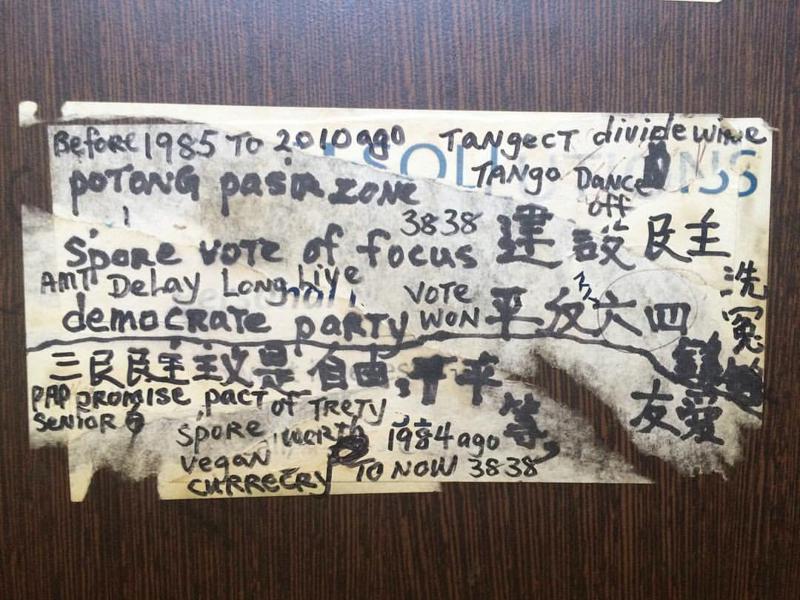 Before 1985 TO 2010 ago TangecT divide wine
POTONG pasir ZONE TANGO DANCE off
3838
Spore VOTE of focus 建設民主
AMT DELAY LONG Live VOTE 洗冤
democrate party WON 平反六四
三民民主主义是自由,平
PAP promise pact of TreTy 友愛
SENIOR
Spore worth 1984 ago 等,
vegan TO NOW 3838
currecry